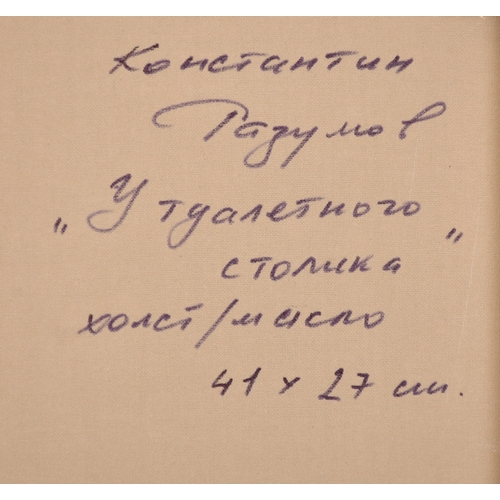 Константин
Разумов
„У туалетного
столика"
холст/масло
41 x 27 см.